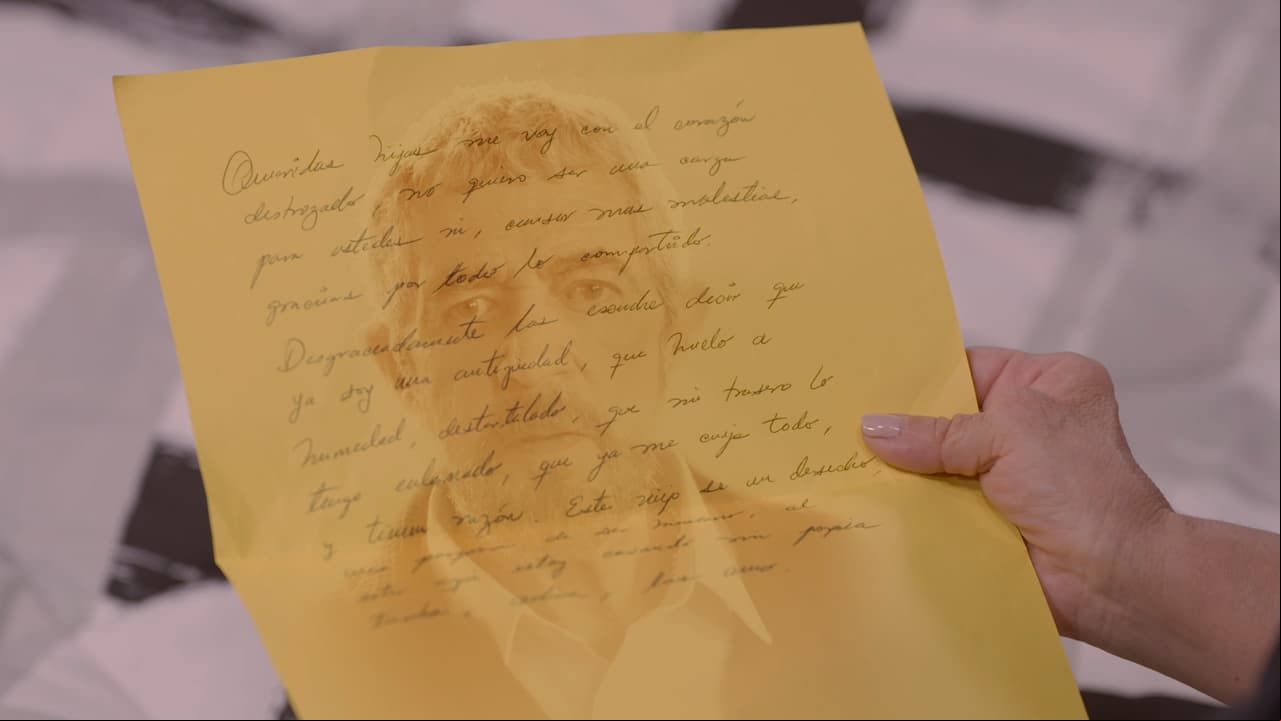 Queridas hijas me voy con el corazón
destrozado, no quiero ser una carga
para ustedes ni, causar mas molestias,
gracias por todo lo compartido.
Desgraciadamente las escuche decir que
ya soy una antigüedad, que huelo a
humedad, destartalado, que mi trasero lo
tengo culurado, que ya me cuje todo,
y tienen razón. Este viejo es un desecho,
una de ser humano, al
estar aqui estoy cavando mi popia
tumba, las amo.